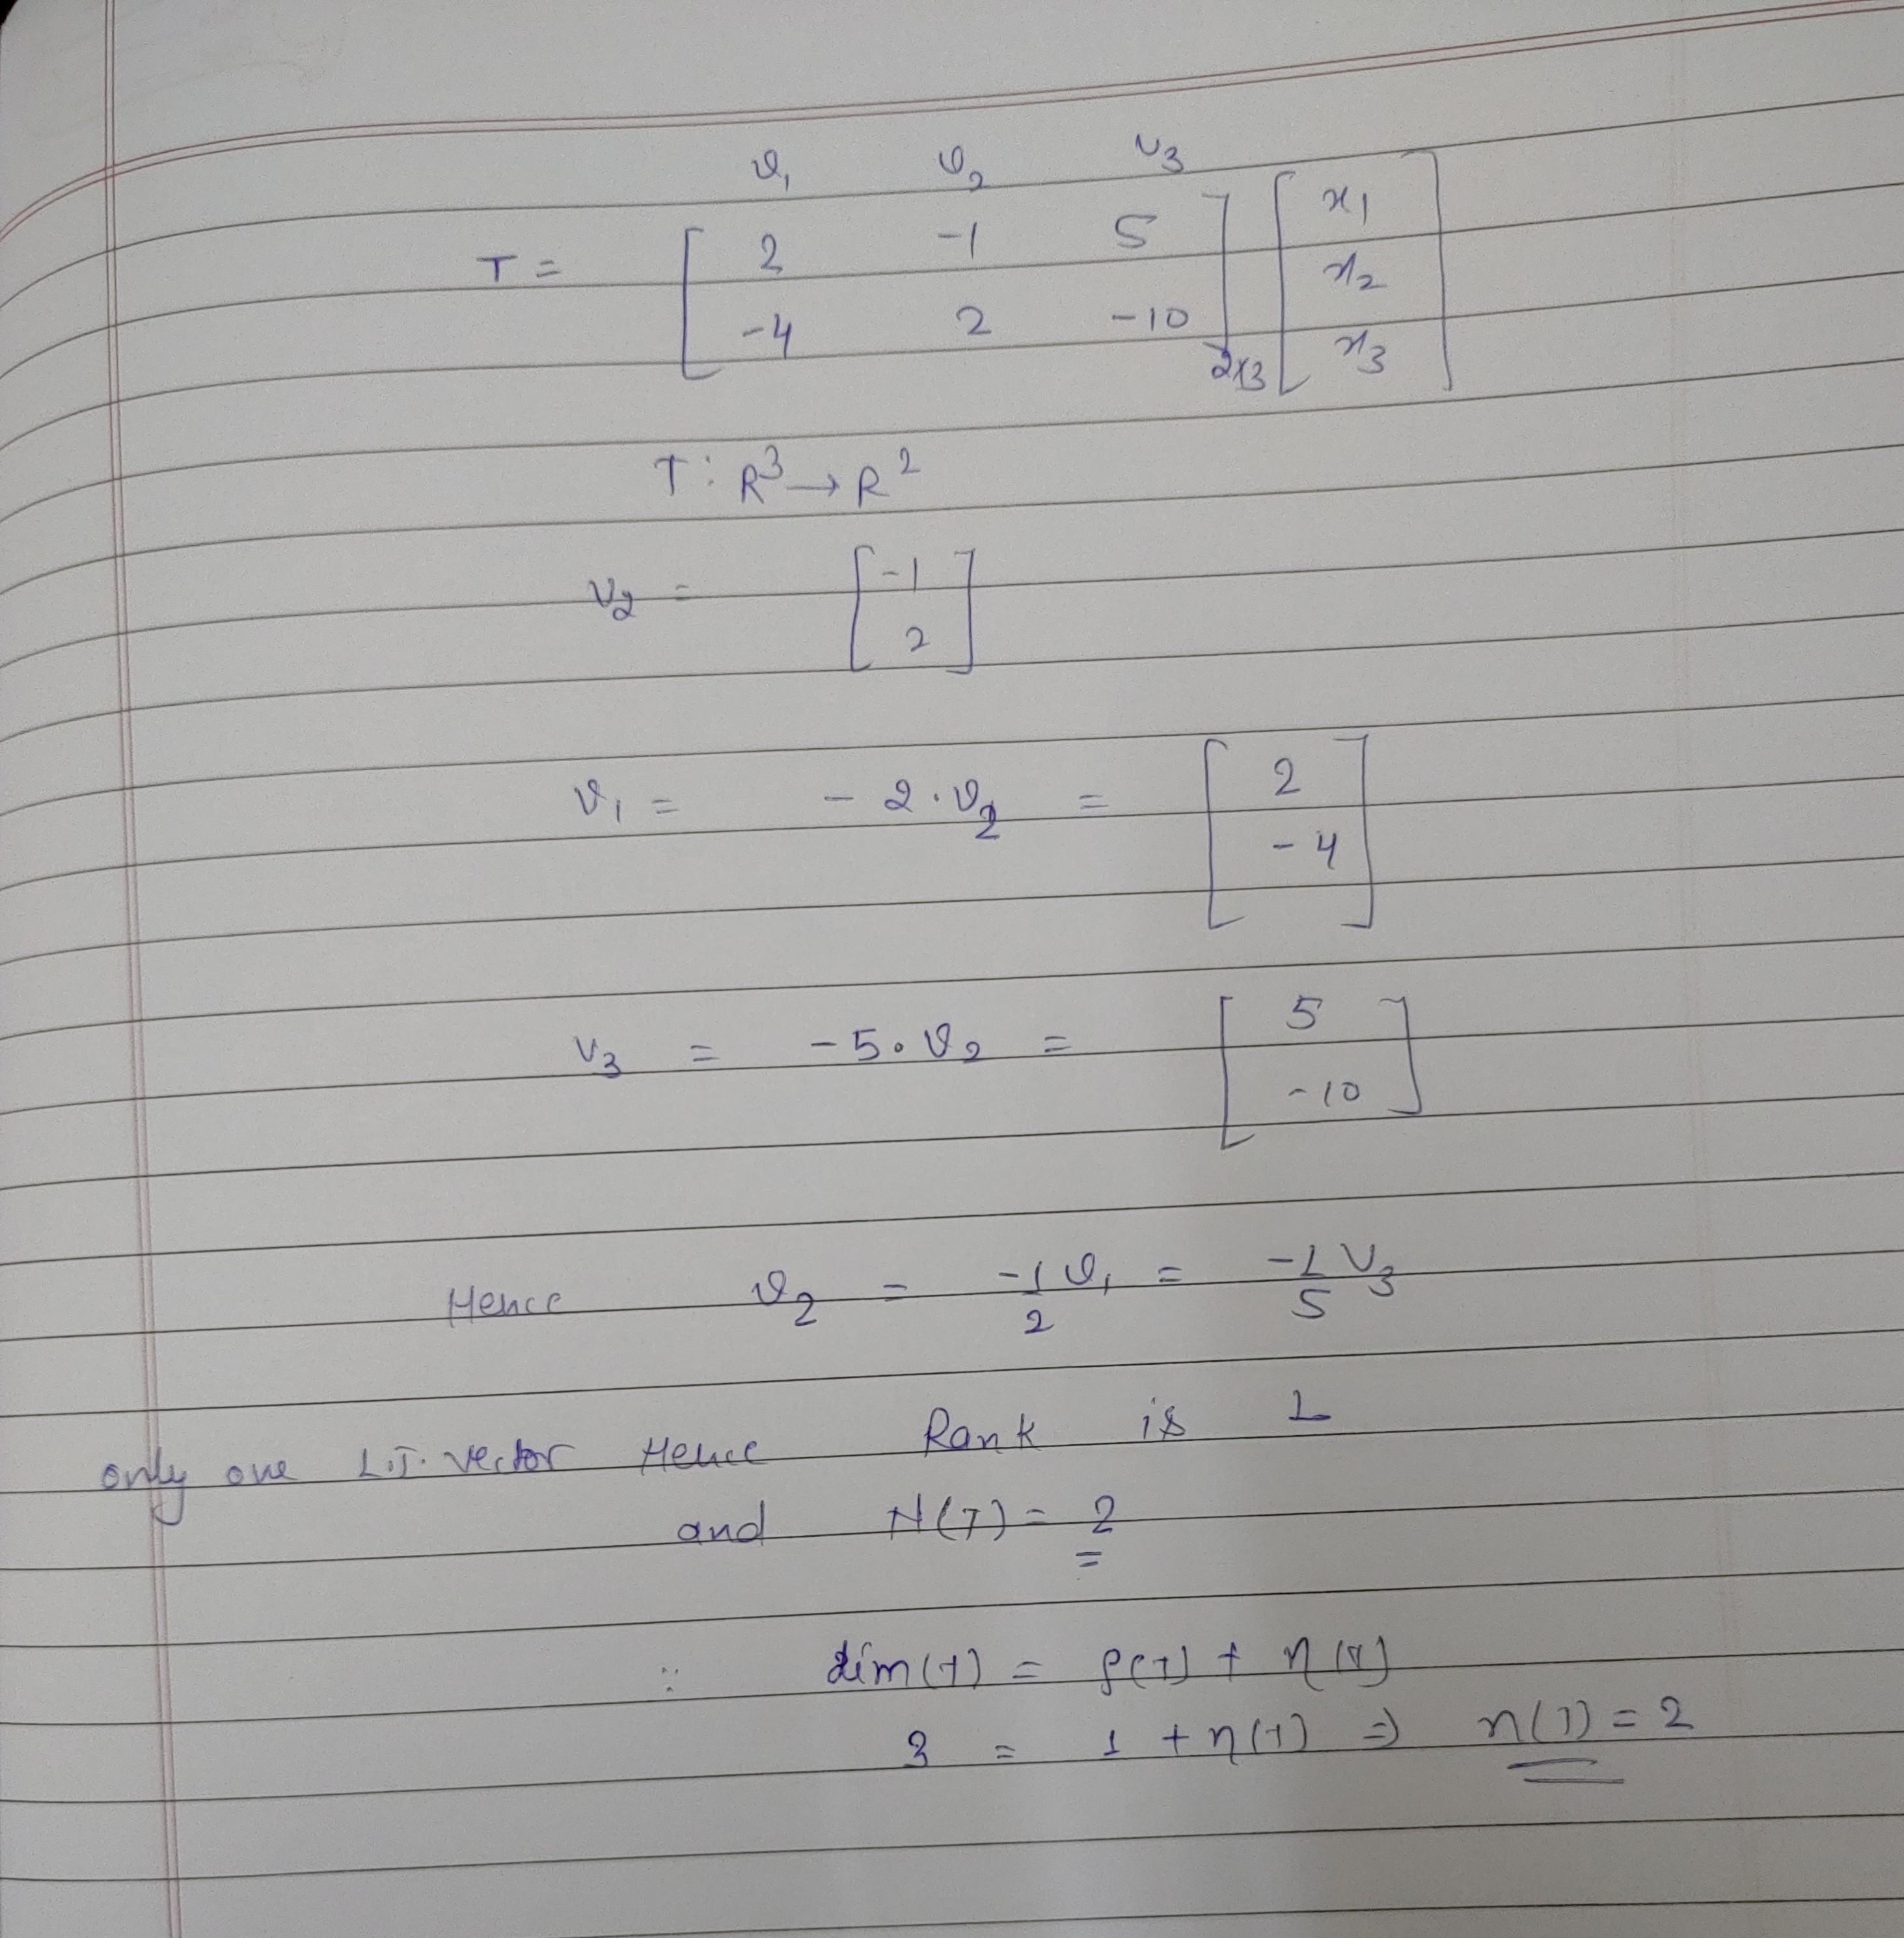 v₁ v₂ v₃
T = [ 2 -1 5 ] [ x₁ ]
[ -4 2 -10 ]₂ₓ₃ [ x₂ ]
[ x₃ ]
T : R³ → R²
v₂ = [ -1
2 ]
v₁ = - 2 · v₂ = [ 2
- 4 ]
v₃ = - 5 · v₂ = [ 5
- 10 ]
Hence v₂ = -1/2 v₁ = -1/5 v₃
only one L.I. vector Hence Rank is 1
and N(T) = 2
∵ dim(T) = ρ(T) + η(T)
3 = 1 + η(T) ⇒ η(T) = 2